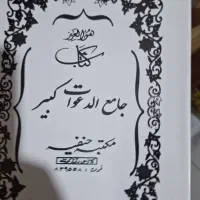 هو العزیز
کتاب
جامع الدعوات کبیر
مکتبہ حنفیہ